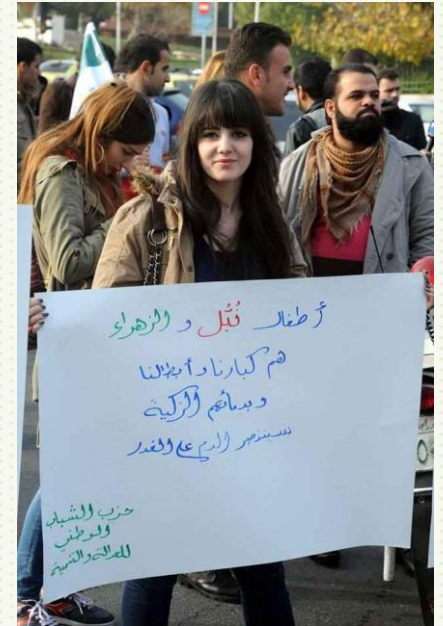 أطفال نُبُّل و الزهراء
هم كبارنا وأبطالنا
وبدمائهم الزكية
سينتصر الدم على الغدر
حزب الشباب
الوطني
للعدالة والتنمية